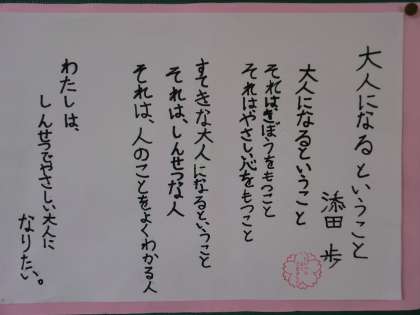 大人になるということ
添田 歩
大人になるということ
それはきぼうをもつこと
それはやさしい心をもつこと
すてきな大人になるということ
それは、しんせつな人
それは、人のことをよくわかる人
わたしは、
しんせつでやさしい大人に
なりたい。